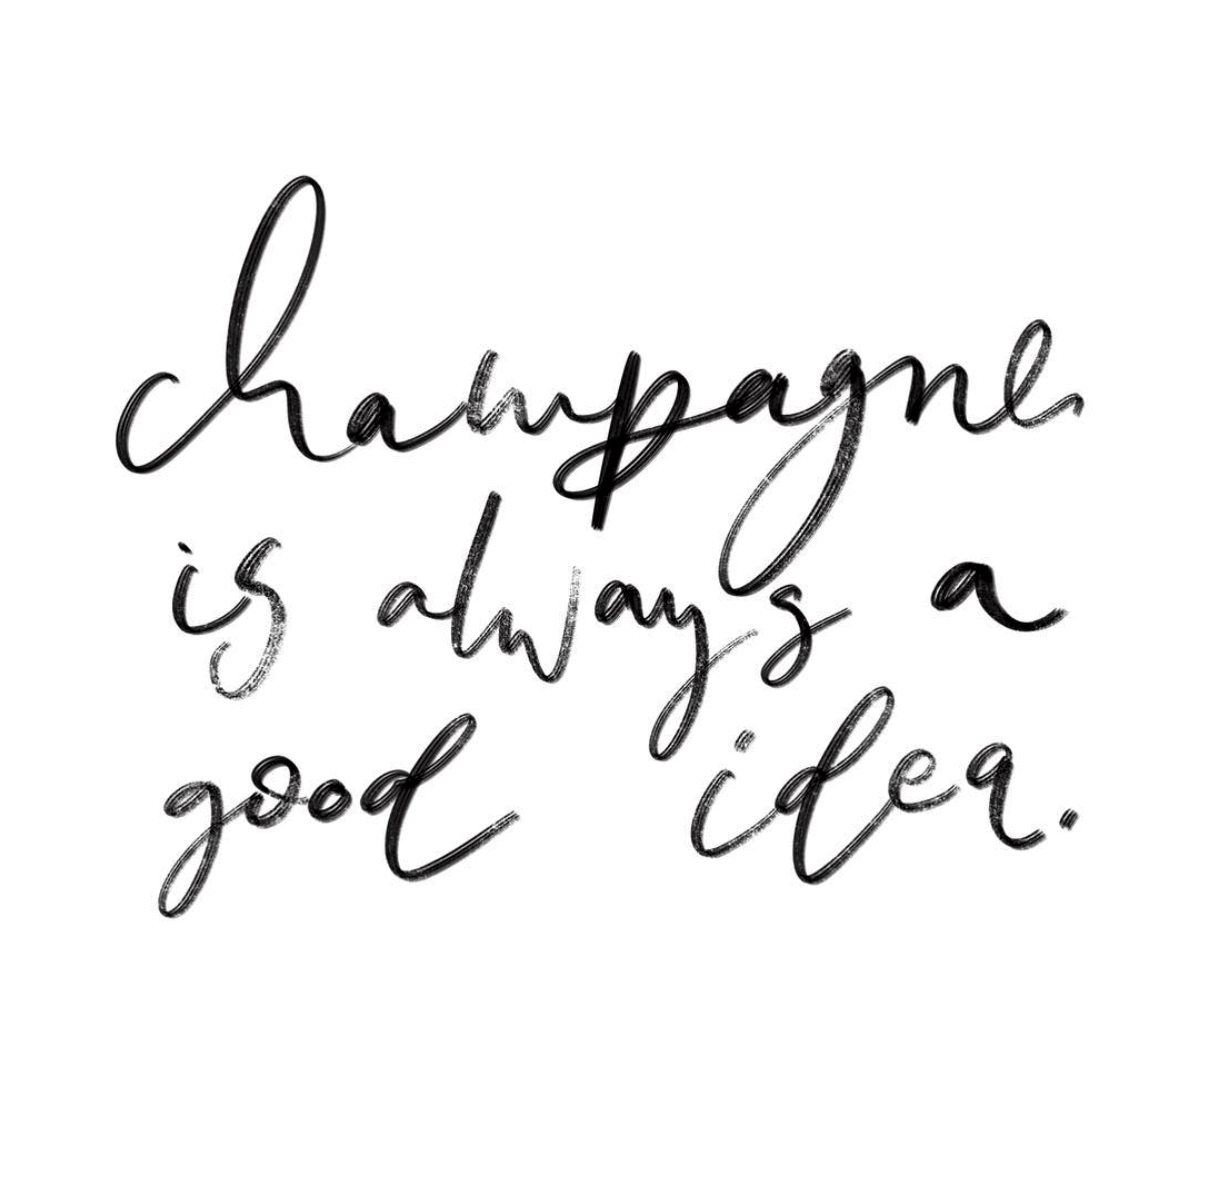 champagne
is always a
good idea.